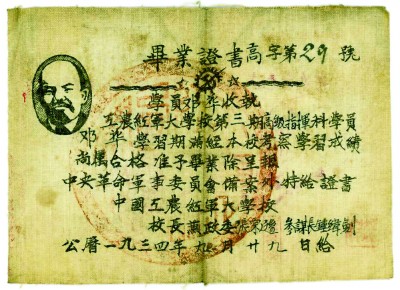 畢業證書高字第29號
學員鄧華收執
工農紅軍大學第三期高級指揮科學員
鄧華學習期滿經本校考察學習成績
尚屬合格准予畢業除報
中央革命軍事委員會備案外特給證書
中國工農紅軍大學校
校長兼政委 參謀長鍾緯劍
公曆一九三四年九月廿九日給